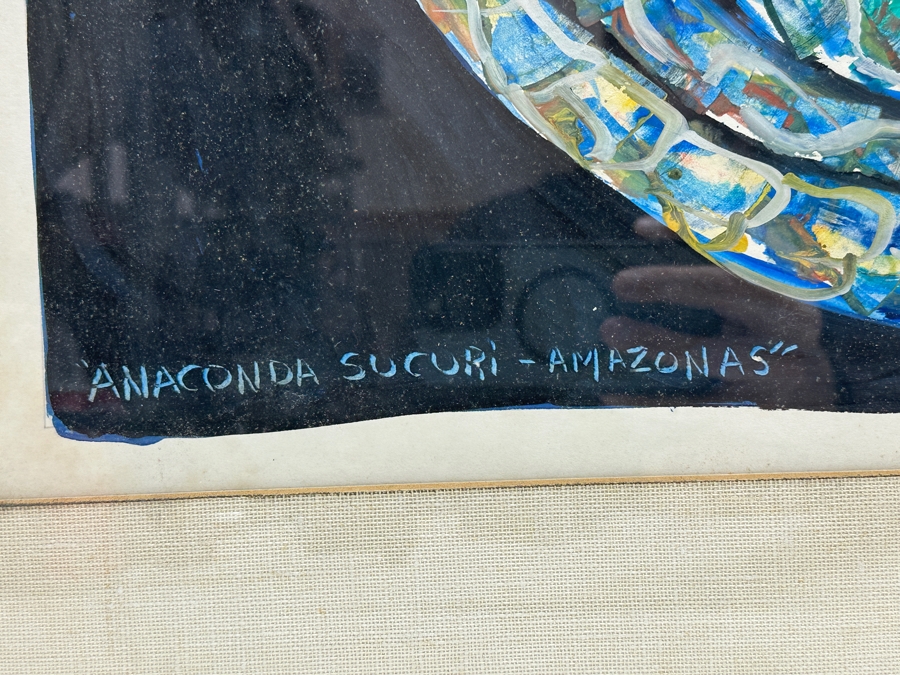 "ANACONDA SUCURi - AMAZONAS"